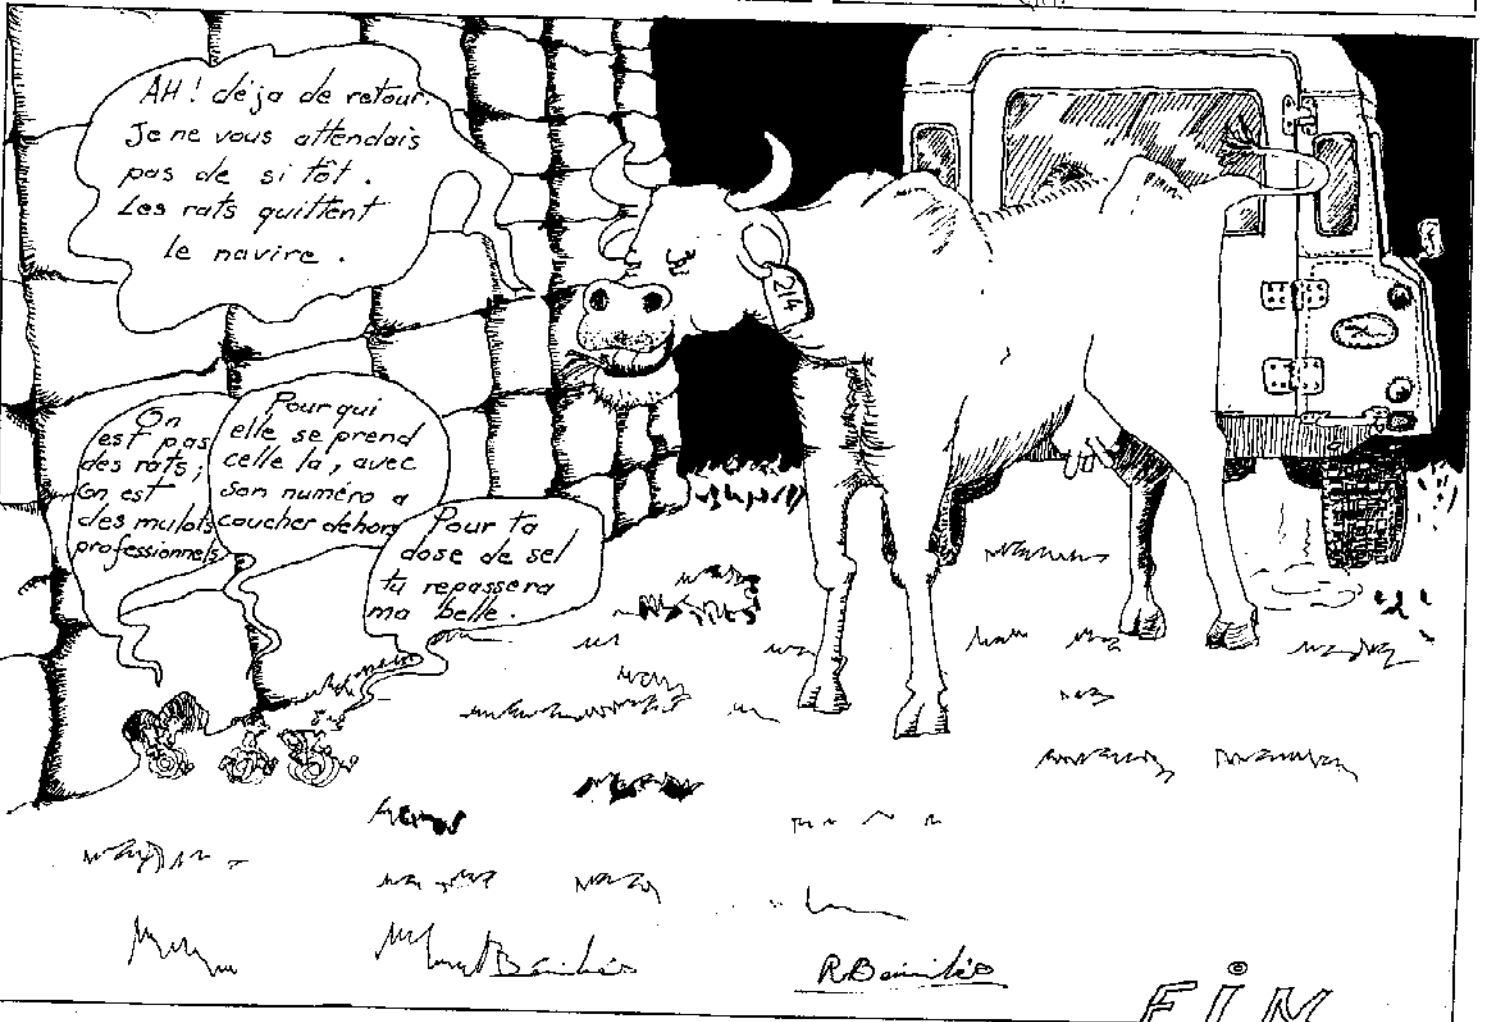 AH! déja de retour.
Je ne vous attendais
pas de si tôt.
Les rats quittent
le navire.
On
est pas
des rats;
on est
des mulots
professionnels
Pour qui
elle se prend
celle la, avec
son numéro a
coucher dehors
Pour ta
dose de sel
tu repassera
ma belle.
214
FIN